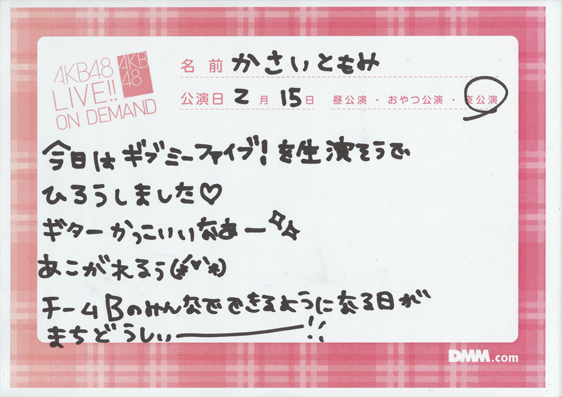 AKB48
LIVE!!
ON DEMAND
AKB
48
名前 かさいともみ
公演日 2月15日 昼公演・おやつ公演・夜公演
今日はギブミーファイブ!を生演そうで
ひろうしました♡
ギターかっこいいなあー
あこがれるぅ(*´∀`*)
チームBのみんなでできるように なる日が
まちどうしぃー!!
DMM.com